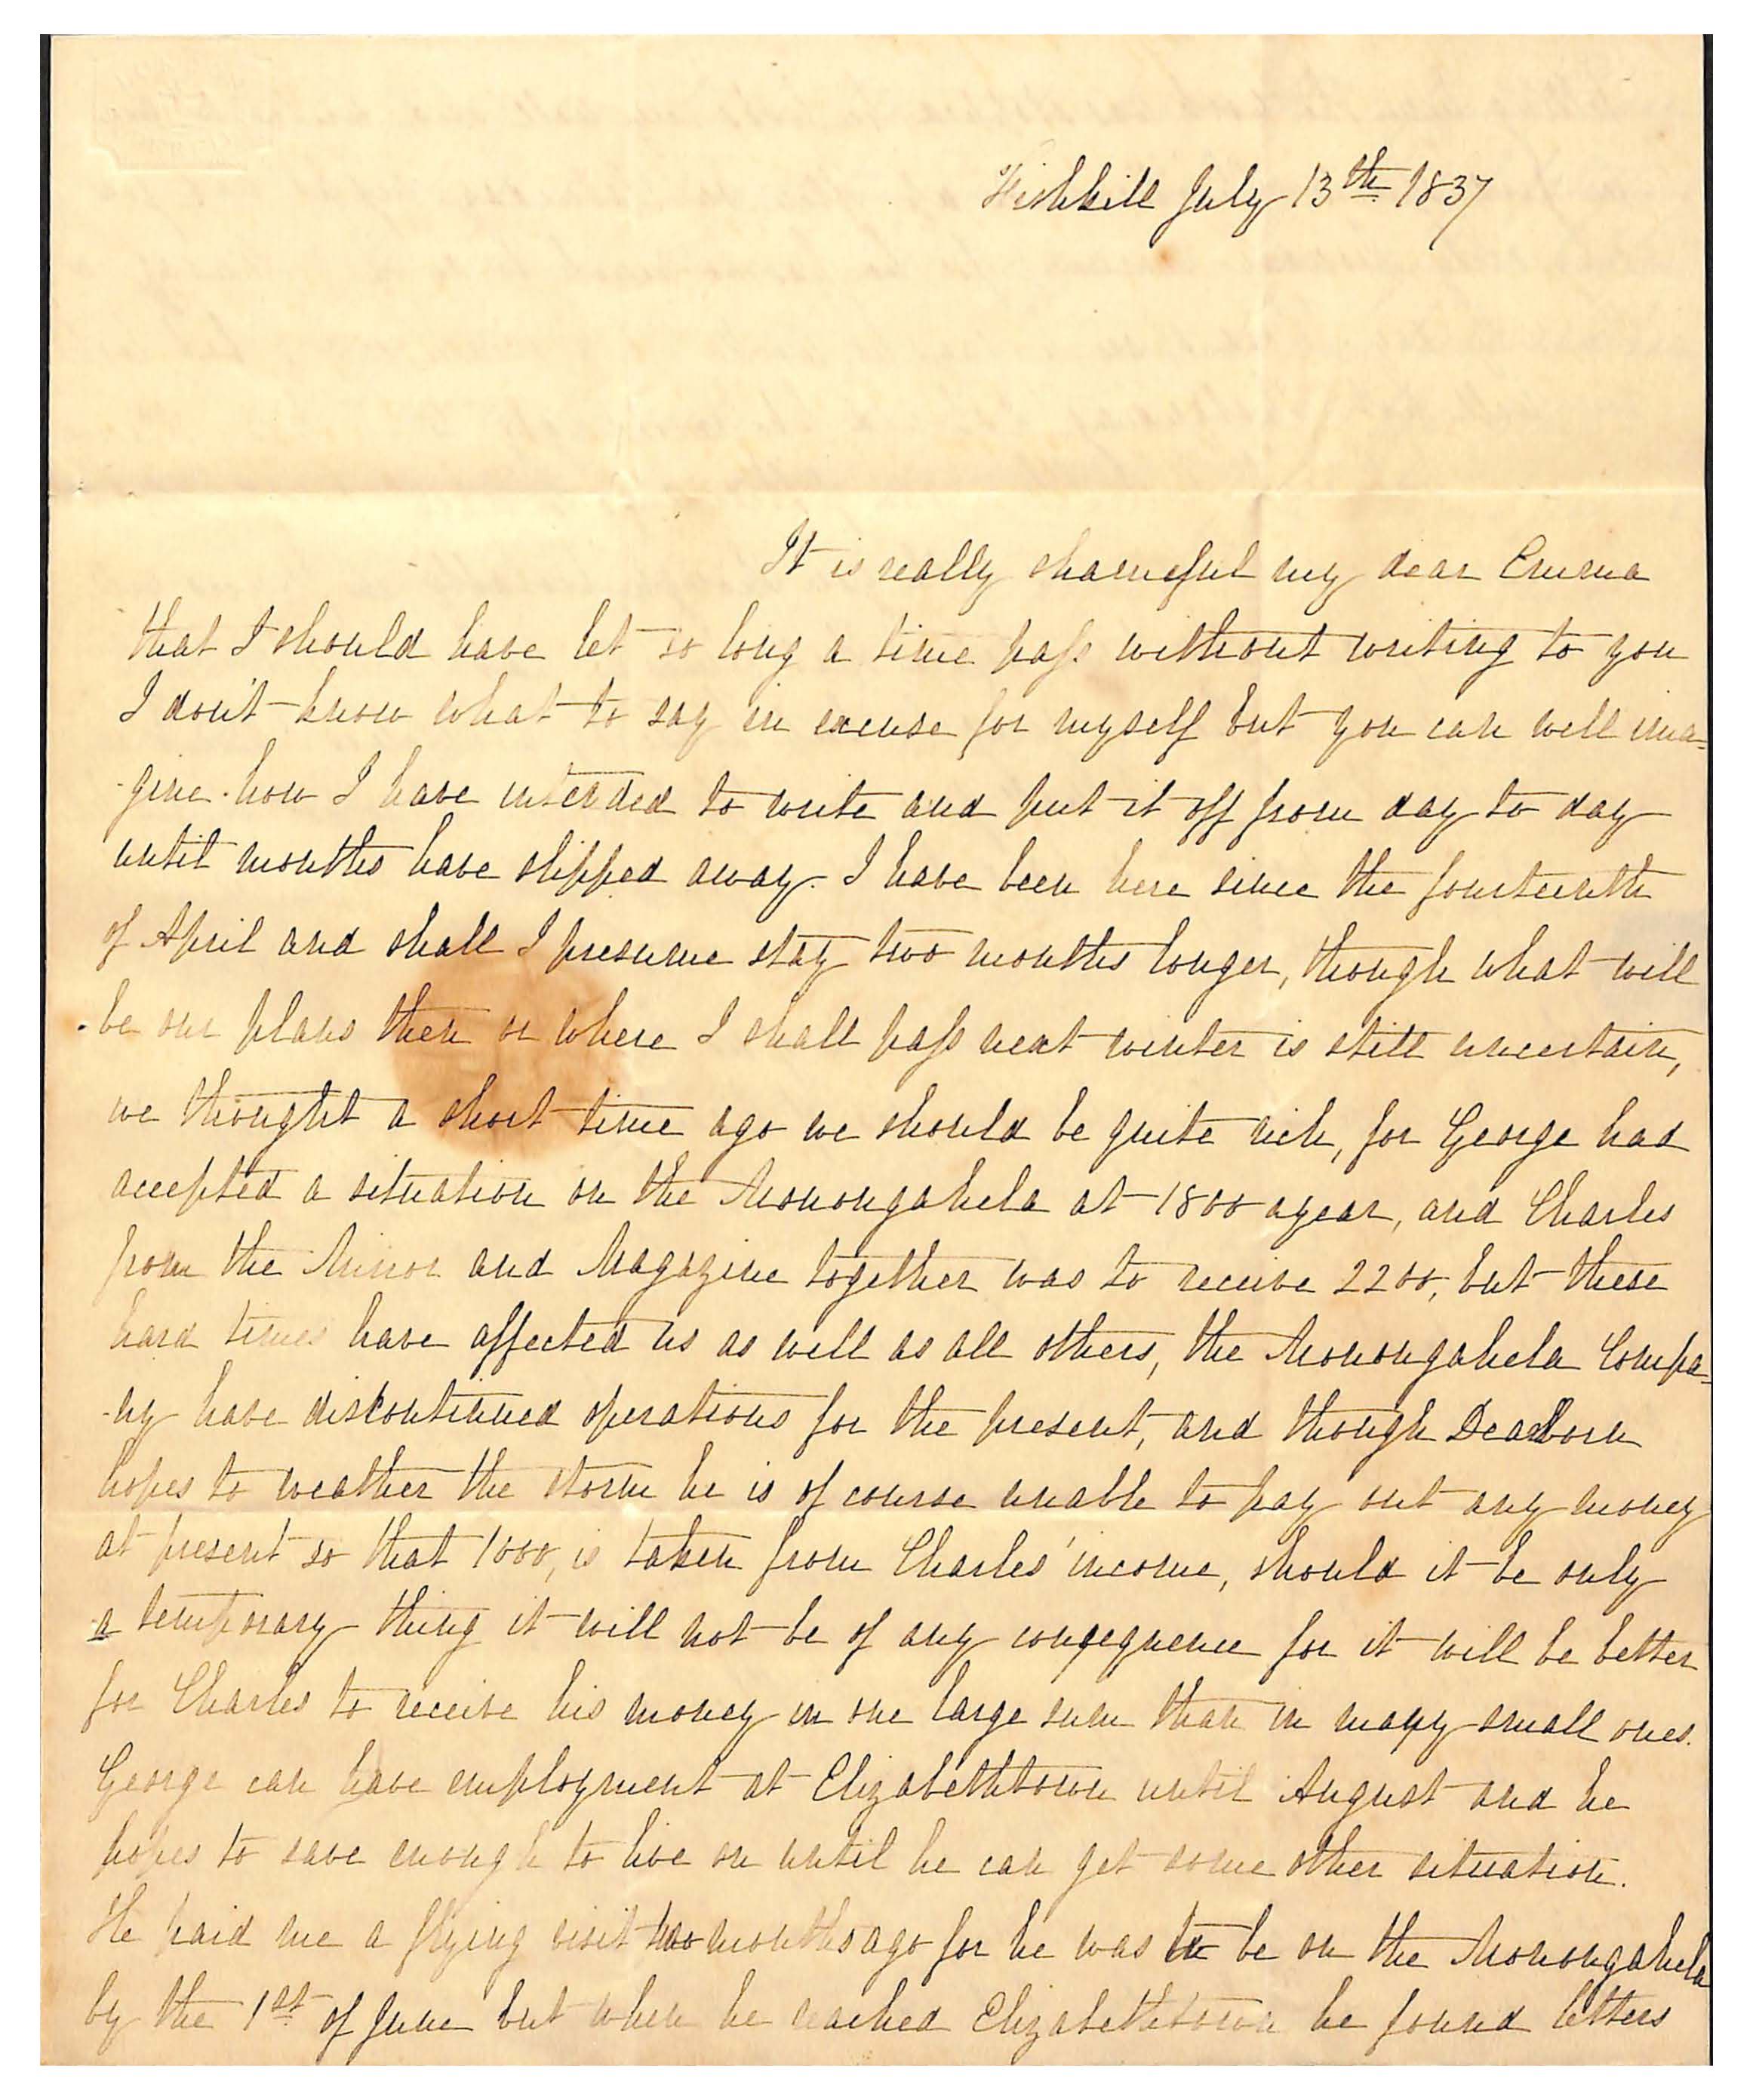 Fishkill July 13th 1837
It is really shameful my dear Emma
that I should have let so long a time pass without writing to you
I don't know what to say in excuse for myself but you can well ima-
-gine how I have intended to write and put it off from day to day
until months have slipped away. I have been here since the fourteenth
of April and shall I presume stay two months longer, though what will
be our plans then or where I shall pass next winter is still uncertain,
we thought a short time ago we should be quite rich, for George had
accepted a situation on the Monongahela at 1800 a year, and Charles
from the Mirror and Magazine together was to receive 2200, but these
hard times have affected us as well as all others, the Monongahela Compa-
-ny have discontinued operations for the present, and though Dearborn
hopes to weather the storm he is of course unable to pay out any money
at present so that 1000, is taken from Charles' income, should it be only
a temporary thing it will not be of any consequence for it will be better
for Charles to receive his money in one large sum than in many small ones.
George can have employment at Elizabethtown until August and he
hopes to save enough to live on until he can get some other situation.
He paid me a flying visit two months ago for he was to be on the Monongahela
by the 1st of June but when he reached Elizabethtown he found letters